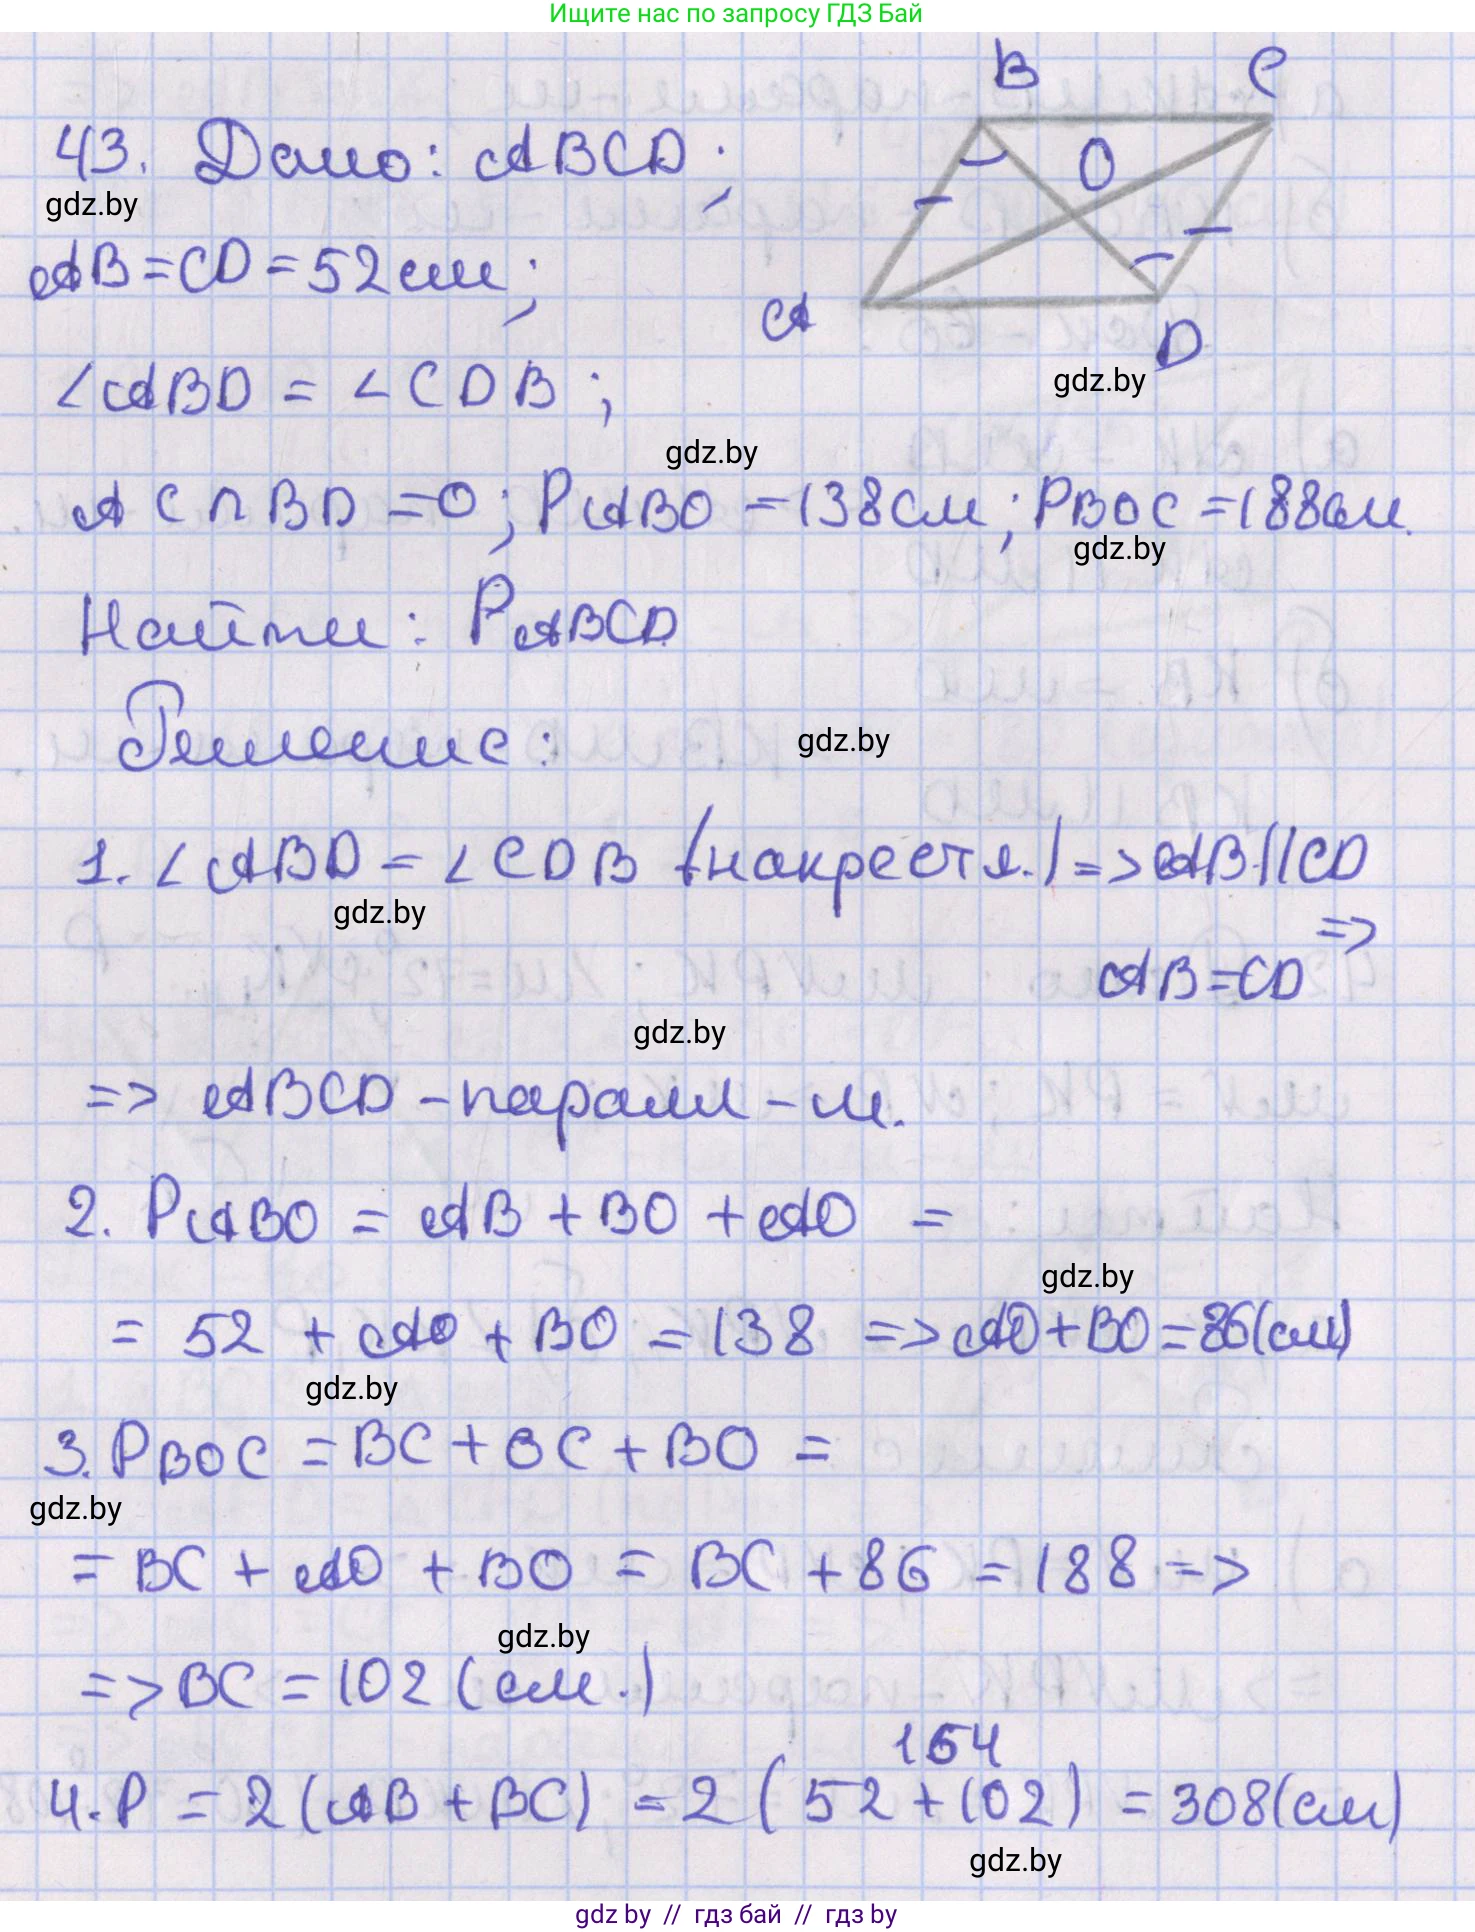 Ищите нас по запросу ГДЗ Бай
B C
43. Дано: ABCD;
O
gdz.by
AB = CD = 52 см;
A
D
gdz.by
∠ABD = ∠CDB;
gdz.by
AC ∩ BD = O; PABO = 138 см; PBOC = 188 см.
gdz.by
Найти: PABCD
Решение:
gdz.by
1. ∠ABD = ∠CDB (накрест л.) => AB || CD
gdz.by
=>
AB = CD
gdz.by
=> ABCD - паралл-м.
2. PABO = AB + BO + AO =
gdz.by
= 52 + AO + BO = 138 => AO + BO = 86 (см)
gdz.by
3. PBOC = BC + OC + BO =
gdz.by
= BC + AO + BO = BC + 86 = 188 =>
gdz.by
=> BC = 102 (см.)
154
4. P = 2 (AB + BC) = 2 (52 + 102) = 308 (см)
gdz.by
gdz by // гдз бай // гдз by